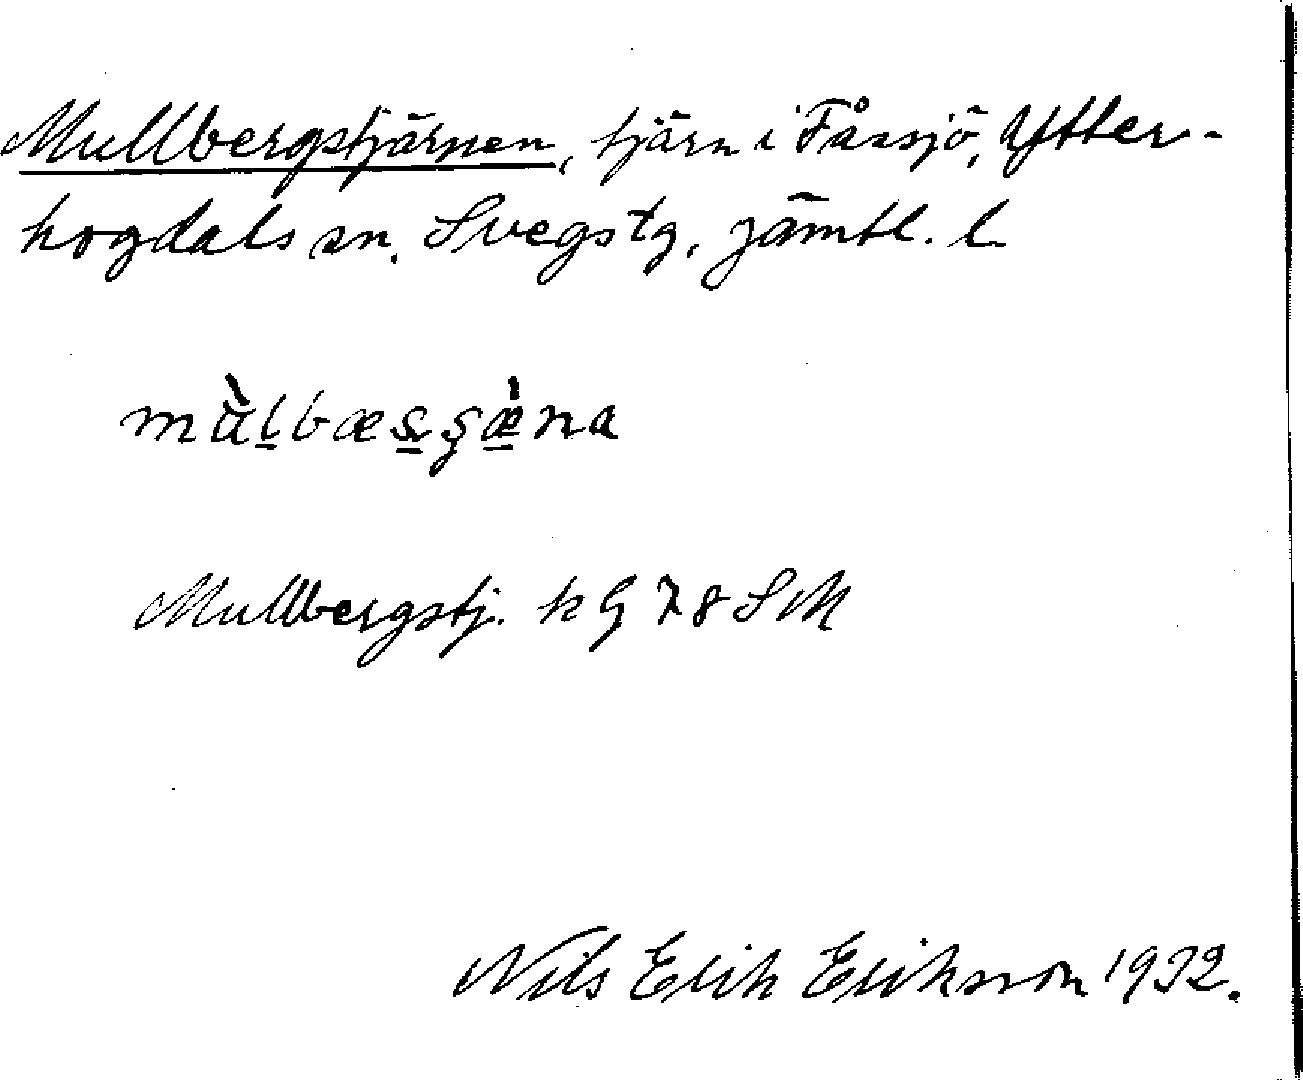 Mullbergstjärnen, tjärn i Fåssjö, Ytter-
hogdals sn. Svegs tg, Jämtl. l.
mùlbæsşæ̀na
Mullbergstj. k G 78 SM
Nils Erik Eriksson 1932.